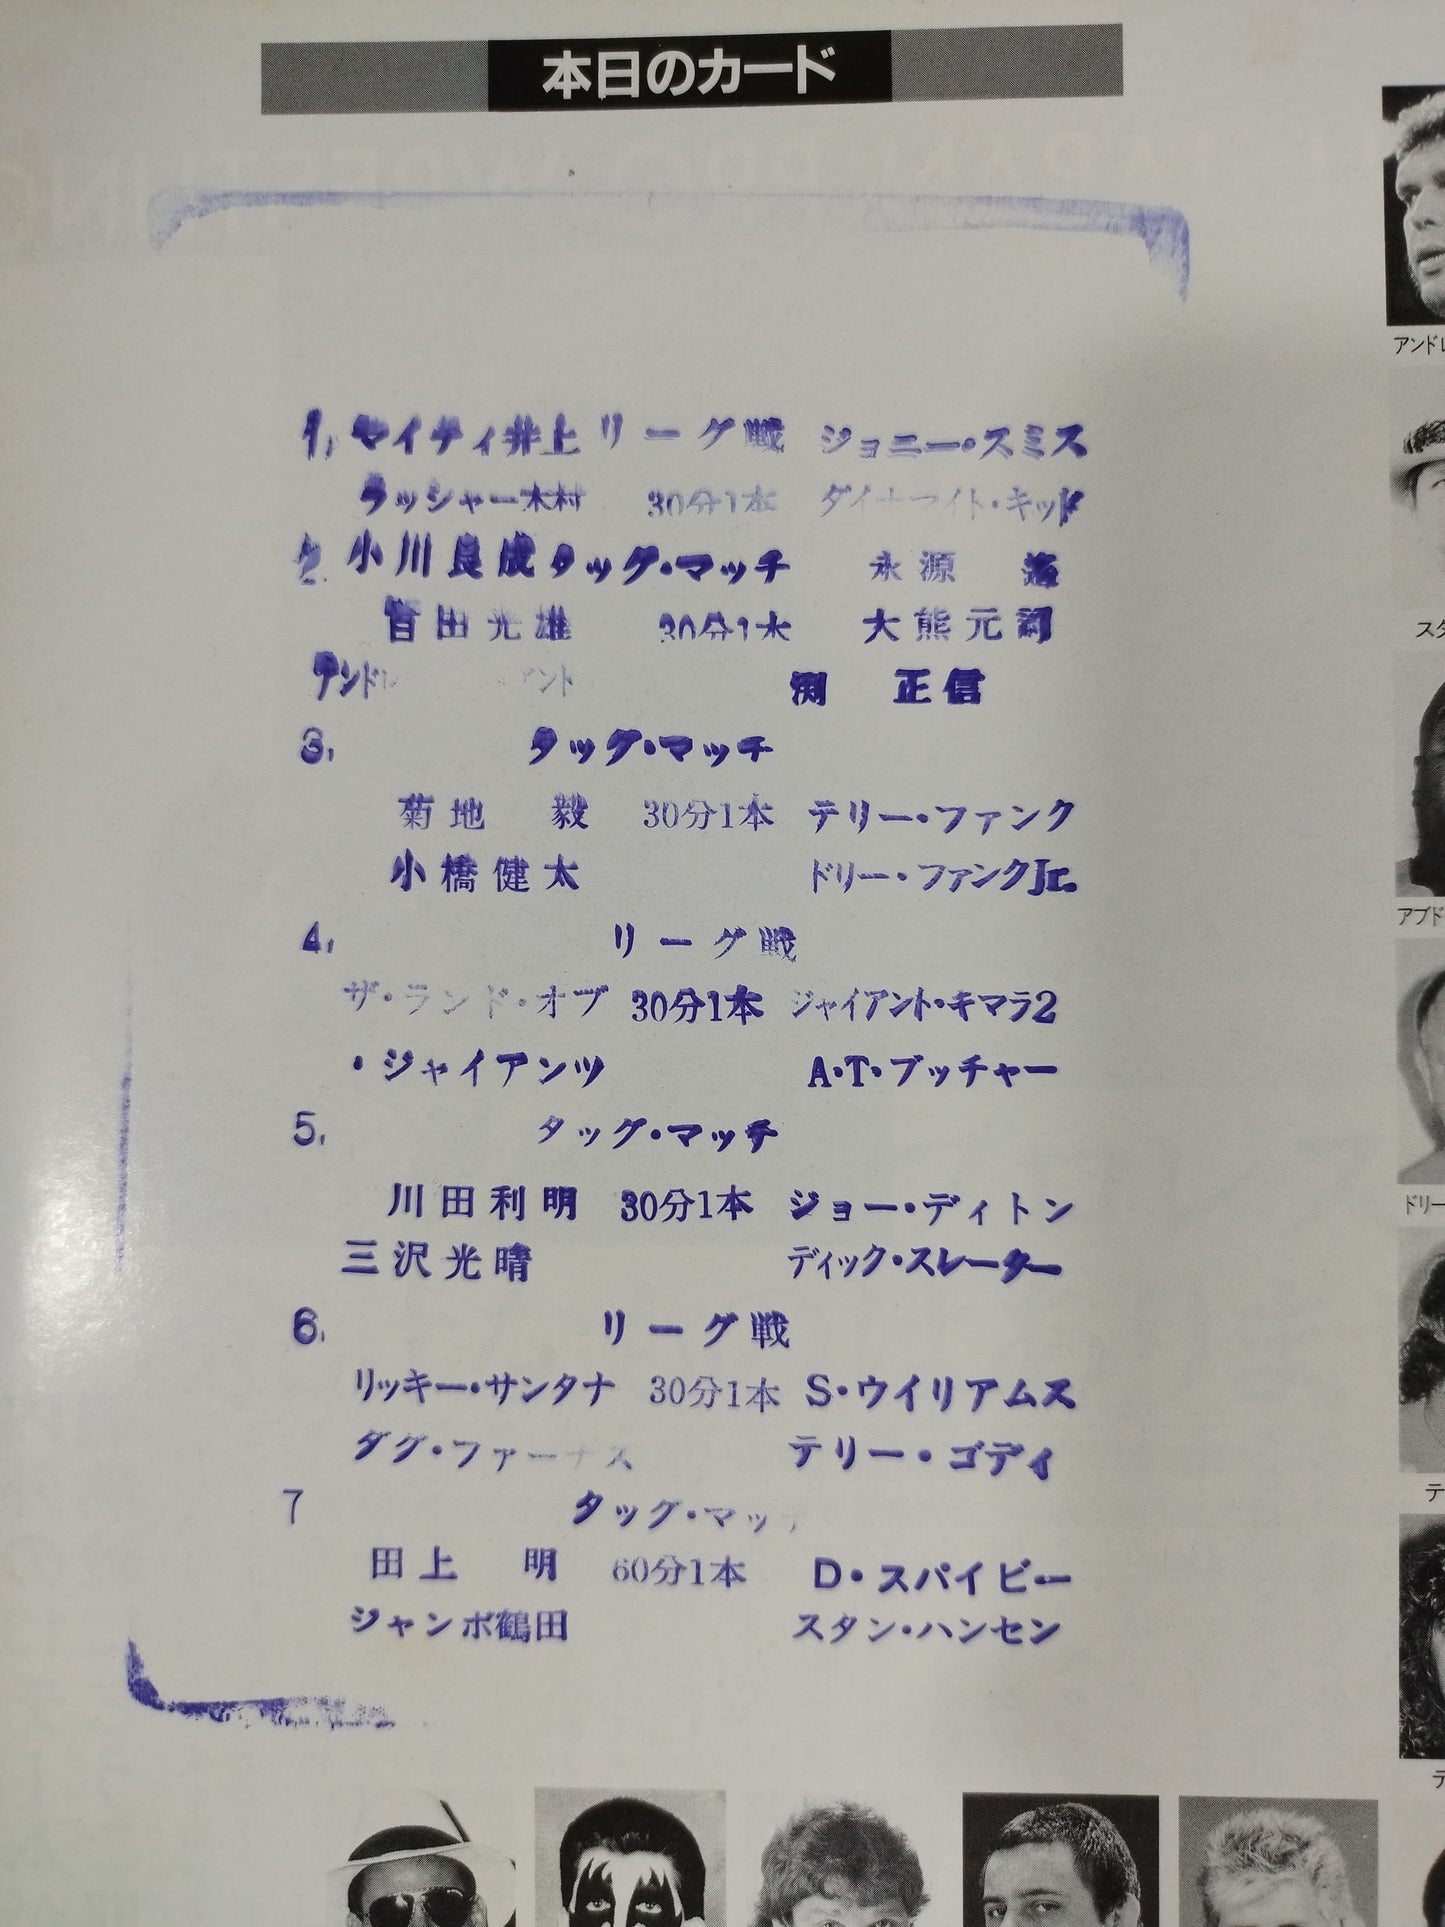 本日のカード
1, マイティ井上 リーグ戦 ジョニー・スミス
ラッシャー木村 30分1本 ダイナマイト・キッド
2. 小川良成 タッグ・マッチ 永源 遙
百田光雄 30分1本 大熊元司
アンドレ アント 渕 正信
3, タッグ・マッチ
菊地 毅 30分1本 テリー・ファンク
小橋健太 ドリー・ファンクJr.
4, リーグ戦
ザ・ランド・オブ 30分1本 ジャイアント・キマラ2
・ジャイアンツ A・T・ブッチャー
5, タッグ・マッチ
川田利明 30分1本 ジョー・ディトン
三沢光晴 ディック・スレーター
6, リーグ戦
リッキー・サンタナ 30分1本 S・ウイリアムス
ダグ・ファーナス テリー・ゴディ
7 タッグ・マッチ
田上 明 60分1本 D・スパイビー
ジャンボ鶴田 スタン・ハンセン
アンドレ
スタ
アブド
ドリー
テ
テ